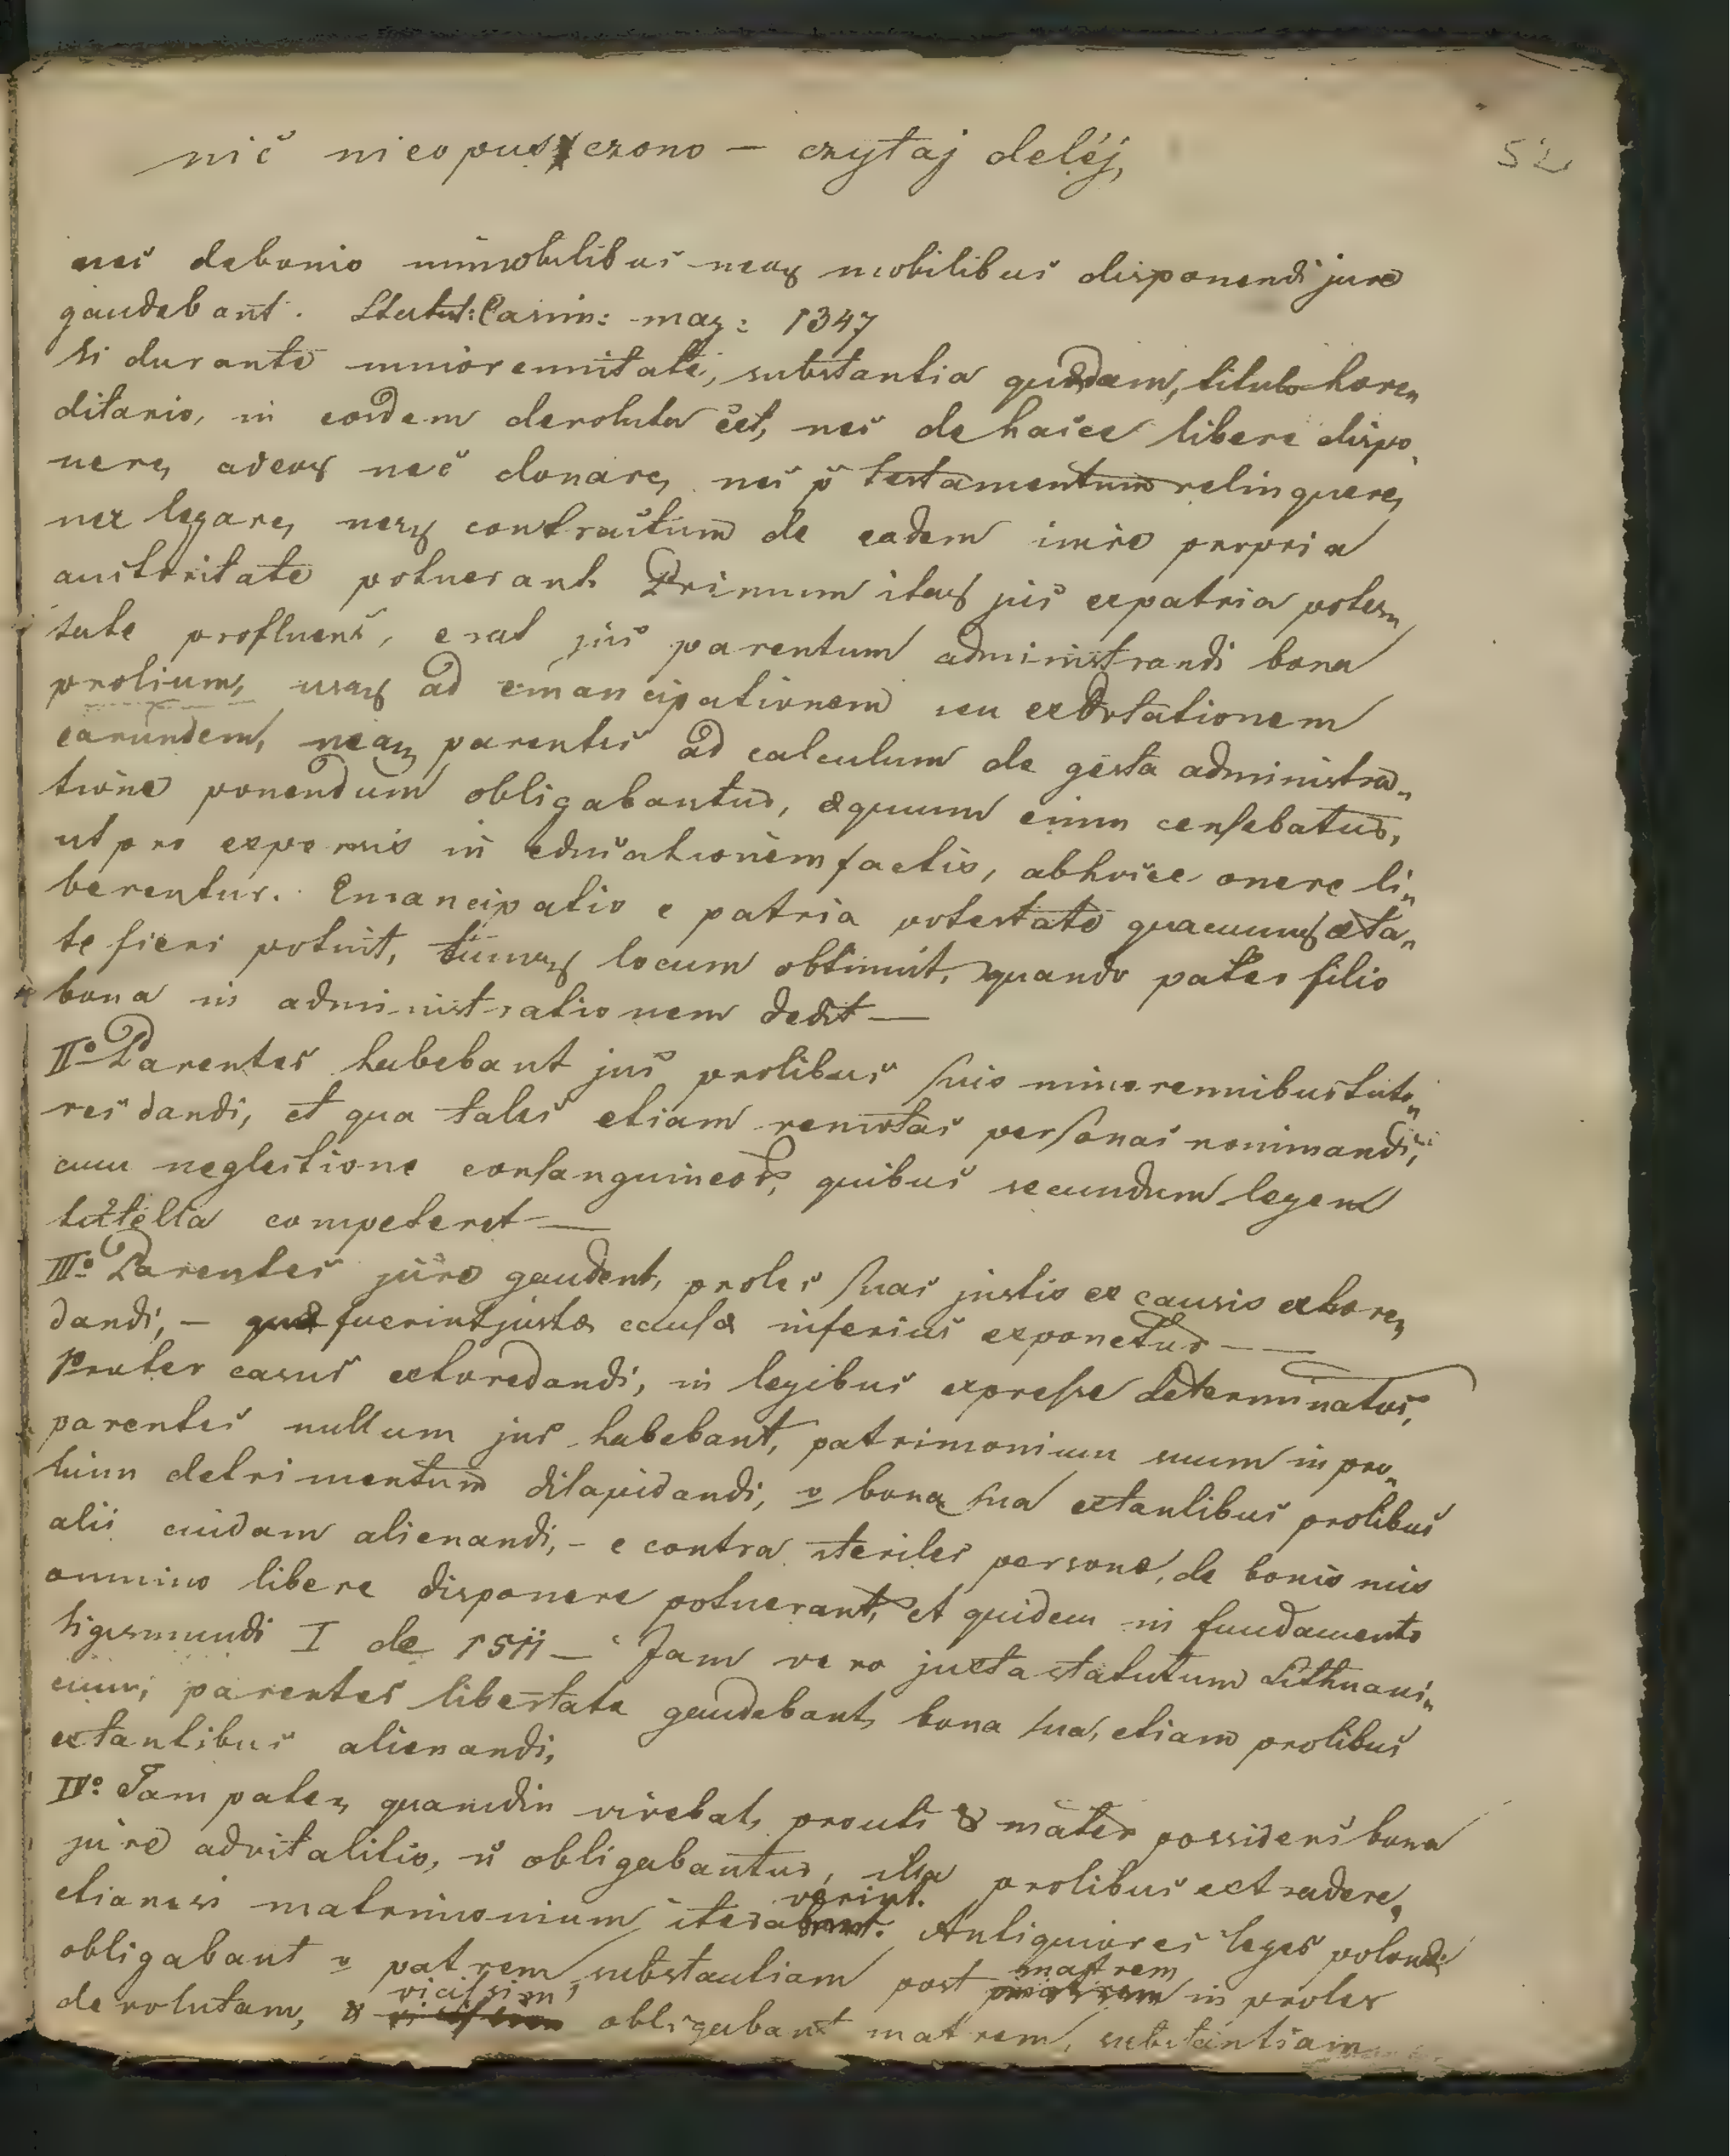 nič nieopuszczono – czytaj deléj,
52
nec de bonis immobilibus neq mobilibus disponendi jure
gaudebant. Statut: Casim: mag: 1347
Si durante minorennitate, substantia quædam, titulo hære„
ditario, in eosdem devoluta est, nec de hacce libere dispo„
nere, adeoq nec donare, nec p testamentum relinquere,
nec legare, neq contractum de eadem inire propria
auctoritate potuerant. Primum itaq jus ex patria potes„
tate profluens, erat jus parentum administrandi bona
prolium, usq ad emancipationem seu exdotationem
earundem, neq parentes ad calculum de gesta administra„
tione ponendum obligabantur, æquum enim censebatur,
ut pro expensis in educationem factis, ab hocce onere li„
berentur. Emancipatio e patria potestate quacunq æta„
te fieri potuit, tumq locum obtinuit, quando pater filio
bona in administrationem dedit —
II° Parentes habebant jus prolibus suis minorennibus tuto„
res dandi, et qua tales etiam remotas personas nominandi,
cum neglectione consanguineor, quibus secundum legem
tutella competeret —
III° Parentes jure gaudent, proles suas justis ex causis exhære„
dandi, – quæ fuerint justæ causæ inferius exponetur —
Præter casus exhæredandi, in legibus expresse determinatos,
parentes nullum jus habebant, patrimonium suum in pro„
lium detrimentum dilapidandi, v bona sua extantibus prolibus
alii cuidam alienandi, – e contra steriles personæ, de bonis suis
omnino libere disponere potuerant, et quidem in fundamento
Sigismundi I de 1511 – Jam vero juxta statutum Lithuani„
cum, parentes libertate gaudebant, bona sua, etiam prolibus
extantibus alienandi,
IV° Tam pater, quamdiu vivebat, prouti & mater possidens bona
jure advitalitio, n obligabantur, illa prolibus extradere,
etiamsi matrimonium iteraverint. Antiquiores leges polonæ
obligabant v patrem, substantiam post matrem in proles
devolutam, & vicissim obligabant matrem, substantiam